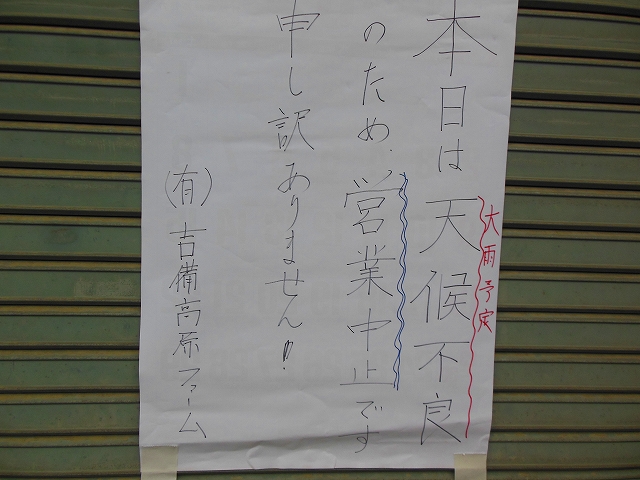 本日は天候不良
大雨予定
のため、営業中止です
申し訳ありません!!
(有)吉備高原ファーム